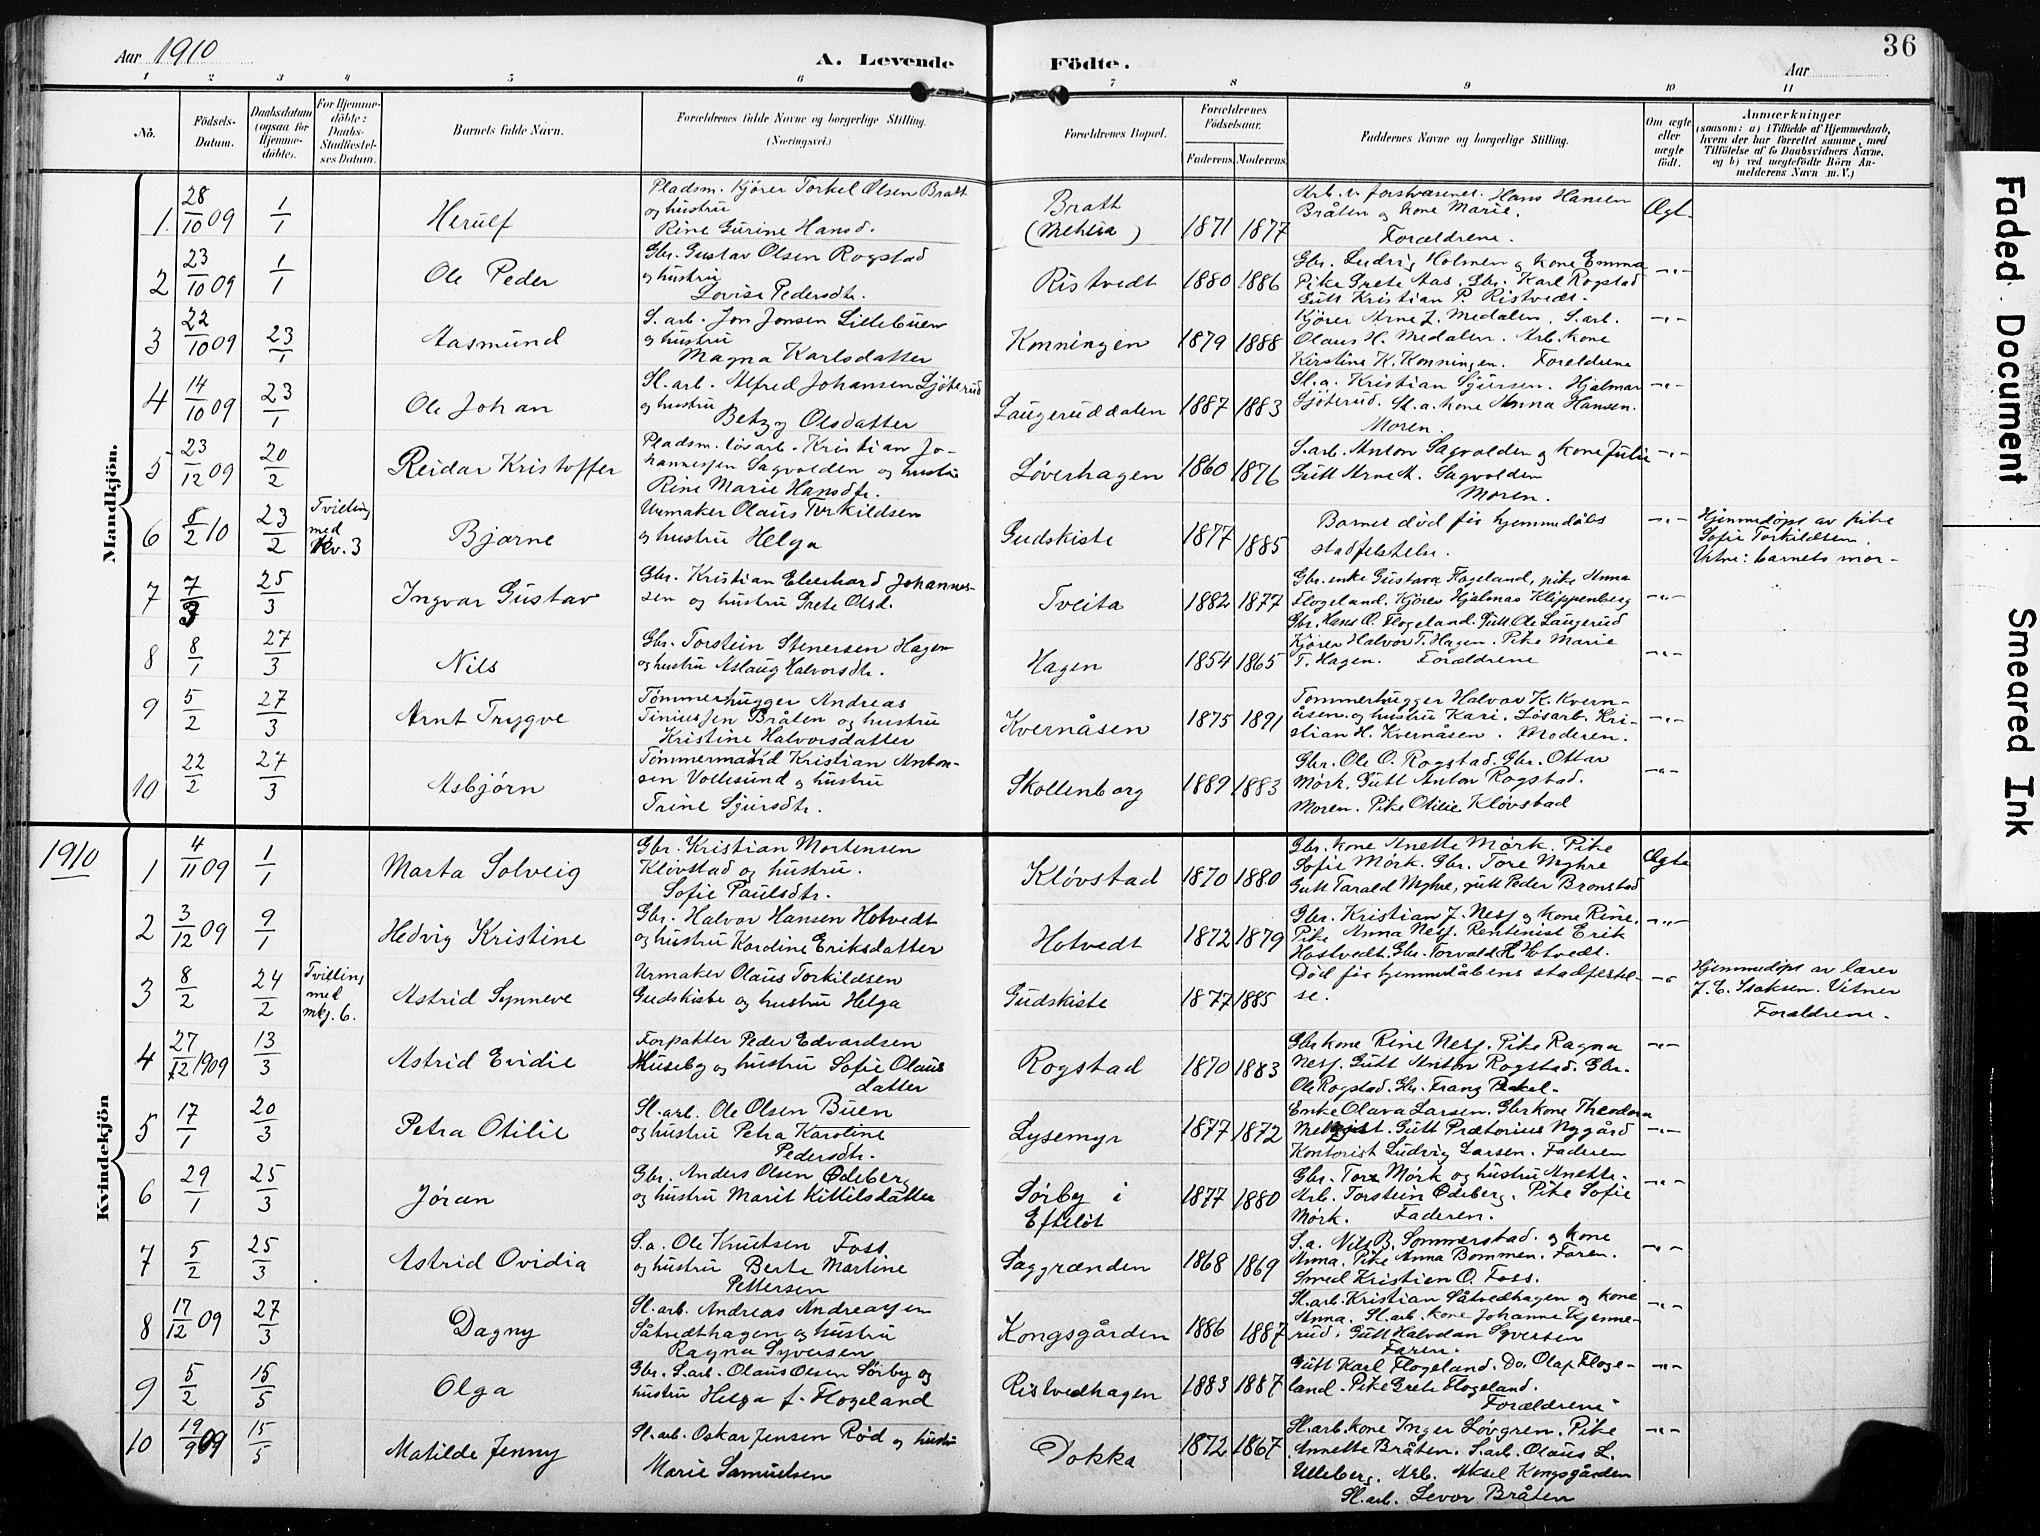 Aar 1910
A. Levende
Födte.
36
Aar
1 2 3 4 5 6 7 8 9 10 11
No.
Födsels-Datum.
Daabsdatum (ogsaa for Hjemmedöbte).
For Hjemmedöbte: Daabs-Stadfæstelses Datum.
Barnets fulde Navn.
Forældrenes fulde Navne og borgerlige Stilling. (Næringsvei.)
Forældrenes Bopæl.
Forældrenes Födselsaar.
Faderens. Moderens.
Faddernes Navne og borgerlige Stilling.
Om ægte eller uægte födt.
Anmærkninger
(saasom: a) i Tilfælde af Hjemmedaab, hvem der har forrettet samme, med Tilföielse af to Daabsvidners Navne, og b) ved uægtefödte Börn Anmelderens Navn m. V.)
Mandkjön.
1. 28/10 09 1/1 Herulf
Pladsm. Kjörer Torkel Olsen Bratt
og hustru
Rine Gurine Hansd.
Bratt
(Mehlia)
1871 1877
Arb. v. forstvæsenet. Hans Hansen
Bråten og kone Marie.
Forældrene.
Ægt.
2 23/10 09 1/1 Ole Peder
Gbr. Gustav Olsen Rogstad
og hustru
Lovise Pedersdtr.
Ristvedt 1880 1886
Gbr. Ludvig Holmen og kone Emma
Pike Grete Aas. Gbr. Karl Rogstad
Gutt Kristian P. Ristvedt.
-"-
3 22/10 09 23/1 Aasmund
S. arb. Jon Jonsen Lillebuen
og hustru
Magna Karlsdatter
Konningen 1879 1888
Kjörer Arne J. Medalen. S. arb.
Olaus H. Medalen. Arb. kone
Kirstine K. Konningen. Forældrene
-"-
4 14/10 09 23/1 Ole Johan
Sl. arb. Alfred Johansen Sjöterud
og hustru
Betzy Olsdatter
Laugeruddalen 1887 1883
Sl. a. Kristian Sjursen. Hjalmar
Sjöterud. Sl. a. kone Anna Hansen.
Moren.
-"-
5 23/12 09 20/2 Reidar Kristoffer
Pladsm. lösarb. Kristian Jo-
hannessen Sagvolden og hustru
Rine Marie Hansdtr.
Löverhagen 1860 1876
S. arb. Anton Sagvolden og kone Julie
Gutt Arne A. Sagvolden
Moren.
-"-
6 8/2 10 23/2 Tvilling med Kv. 3 Bjarne
Urmaker Olaus Torkildsen
og hustru Helga
Gudskiste 1877 1885
Barnet död för hjemmedåbs
stadfestelse.
-"-
Hjemmedöpt av pike
Sofie Torkildsen.
Vitne: barnets mor-
7 7/3 25/3 Ingvar Gustav
Gbr. Kristian Eberhard Johannes-
sen og hustru Grete Olsd.
Tveita 1882 1877
Gbr. enke Gustava Flogeland, pike Anna
Flogeland. Kjörer Hjalmar Klippenberg
Gbr. Hans O. Flogeland. Gutt Ole Laugerud
-"-
8 8/1 27/3 Nils
Gbr. Torstein Stenersen Hagen
og hustru Aslaug Halvorsdtr.
Hagen 1854 1865
Kjörer Halvor T. Hagen. Pike Marie
T. Hagen. Forældrene
-"-
9 5/2 27/3 Arnt Trygve
Tömmerhugger Andreas
Tiniussen Bråten og hustru
Kristine Halvorsdatter
Kvernåsen 1875 1891
Tömmerhugger Halvor K. Kvern-
åsen og hustru Kari. Lösarb. Kri-
stian H. Kvernåsen. Moderen.
-"-
10 22/2 27/3 Asbjörn
Tömmermand Kristian Anton-
sen Vollesund og hustru
Trine Sjursdtr.
Skollenborg 1889 1883
Gbr. Ole O. Rogstad. Gbr. Ottar
Mörk. Gutt Anton Rogstad.
Moren. Pike Otilie Klövstad
-"-
1910
Kvindekjön
1 4/11 09 1/1 Marta Solveig
Gbr. Kristian Mortensen
Klövstad og hustru.
Sofie Paulsdtr.
Klövstad 1870 1880
Gbr. kone Anette Mörk. Pike
Sofie Mörk. Gbr. Tore Myhre
Gutt Tarald Myhre, gutt Peder Bronstad
Ægte
2 3/12 09 9/1 Hedvig Kristine
Gbr. Halvor Hansen Hotvedt
og hustru Karoline Eriksdatter
Hotvedt 1872 1879
Gbr. Kristian J. Nesj og kone Rine.
Pike Anna Nesj. Rentenist Erik
Hostvedt. Gbr. Torvald H Hotvedt.
-"-
3 8/2 24/2 Tvilling med mkj. 6. Astrid Synneve
Urmaker Olaus Torkildsen
Gudskiste og hustru Helga
Gudskiste 1877 1885
Död för hjemmedåbens stadfestel-
se.
-"-
Hjemmedöpt av lærer
J. E. Isaksen. Vitner
Forældrene.
4 27/12 1909 13/3 Astrid Evidie
Forpakter Peder Edvardsen
Huseby og hustru Sofie Olaus
datter
Rogstad 1870 1883
Gbr kone Rine Nesj. Pike Ragna
Nesj. Gutt Anton Rogstad. Gbr.
Ole Rogstad. Gbr. Franz
-"-
5 17/1 20/3 Petra Otilie
Sl. arb. Ole Olsen Buen
og hustru Petra Karoline
Pedersdtr.
Lysemyr 1877 1872
Enke Olava Larsen. Gbr kone Theodora
Gutt Prætorius Nygård
Kontorist Ludvig Larsen. Faderen
-"-
6 29/1 25/3 Jöran
Gbr. Anders Olsen Ödeberg
og hustru Marit Kittilsdatter
Sörby i
Efteløt
1877 1880
Gbr. Tore Mörk og hustru Anette.
Arb. Torstein Ödeberg. Pike Sofie
Mörk. Faderen.
-"-
7 5/2 25/3 Astrid Ovidia
S. a. Ole Knutsen Foss
og hustru Berte Martine
Pettersen
Saggrænden 1868 1869
S. a. Nils B. Sommerstad. og kone
Anna. Pike Anna Bommen. Faren.
Smed Kristien O. Foss.
-"-
8 17/12 09 27/3 Dagny
Sl. arb. Andreas Andreassen
Såtvedthagen og hustru
Ragna Syversen
Kongsgården 1886 1887
Sl. arb. Kristian Såtvedhagen og kone
Anna. Sl. arb. kone Johanne Kjenne-
rud. Gutt Halvdan Syversen
Faren.
-"-
9 5/2 15/5 Olga
Gbr. S. arb. Olaus Olsen Sörby og
hustru Helga f. Flogeland
Ristvedhagen 1883 1887
Gutt Karl Flogeland. Do. Olaf Floge-
land. Pike Grete Flogeland.
Forældrene
-"-
10 19/9 09 15/5 Matilde Jenny
Sl. arb. Oskar Jensen Röd og hustru
Marie Samuelsen
Dokka 1872 1867
Sl. arb. kone Inger Lövgren. Pike
Annette Bråten. S. arb. Olaus L.
Ulleberg. Arb. Aksel Kongsgården
Sl. arb. Levor Bråten
-"-
Faded Document
Smeared Ink